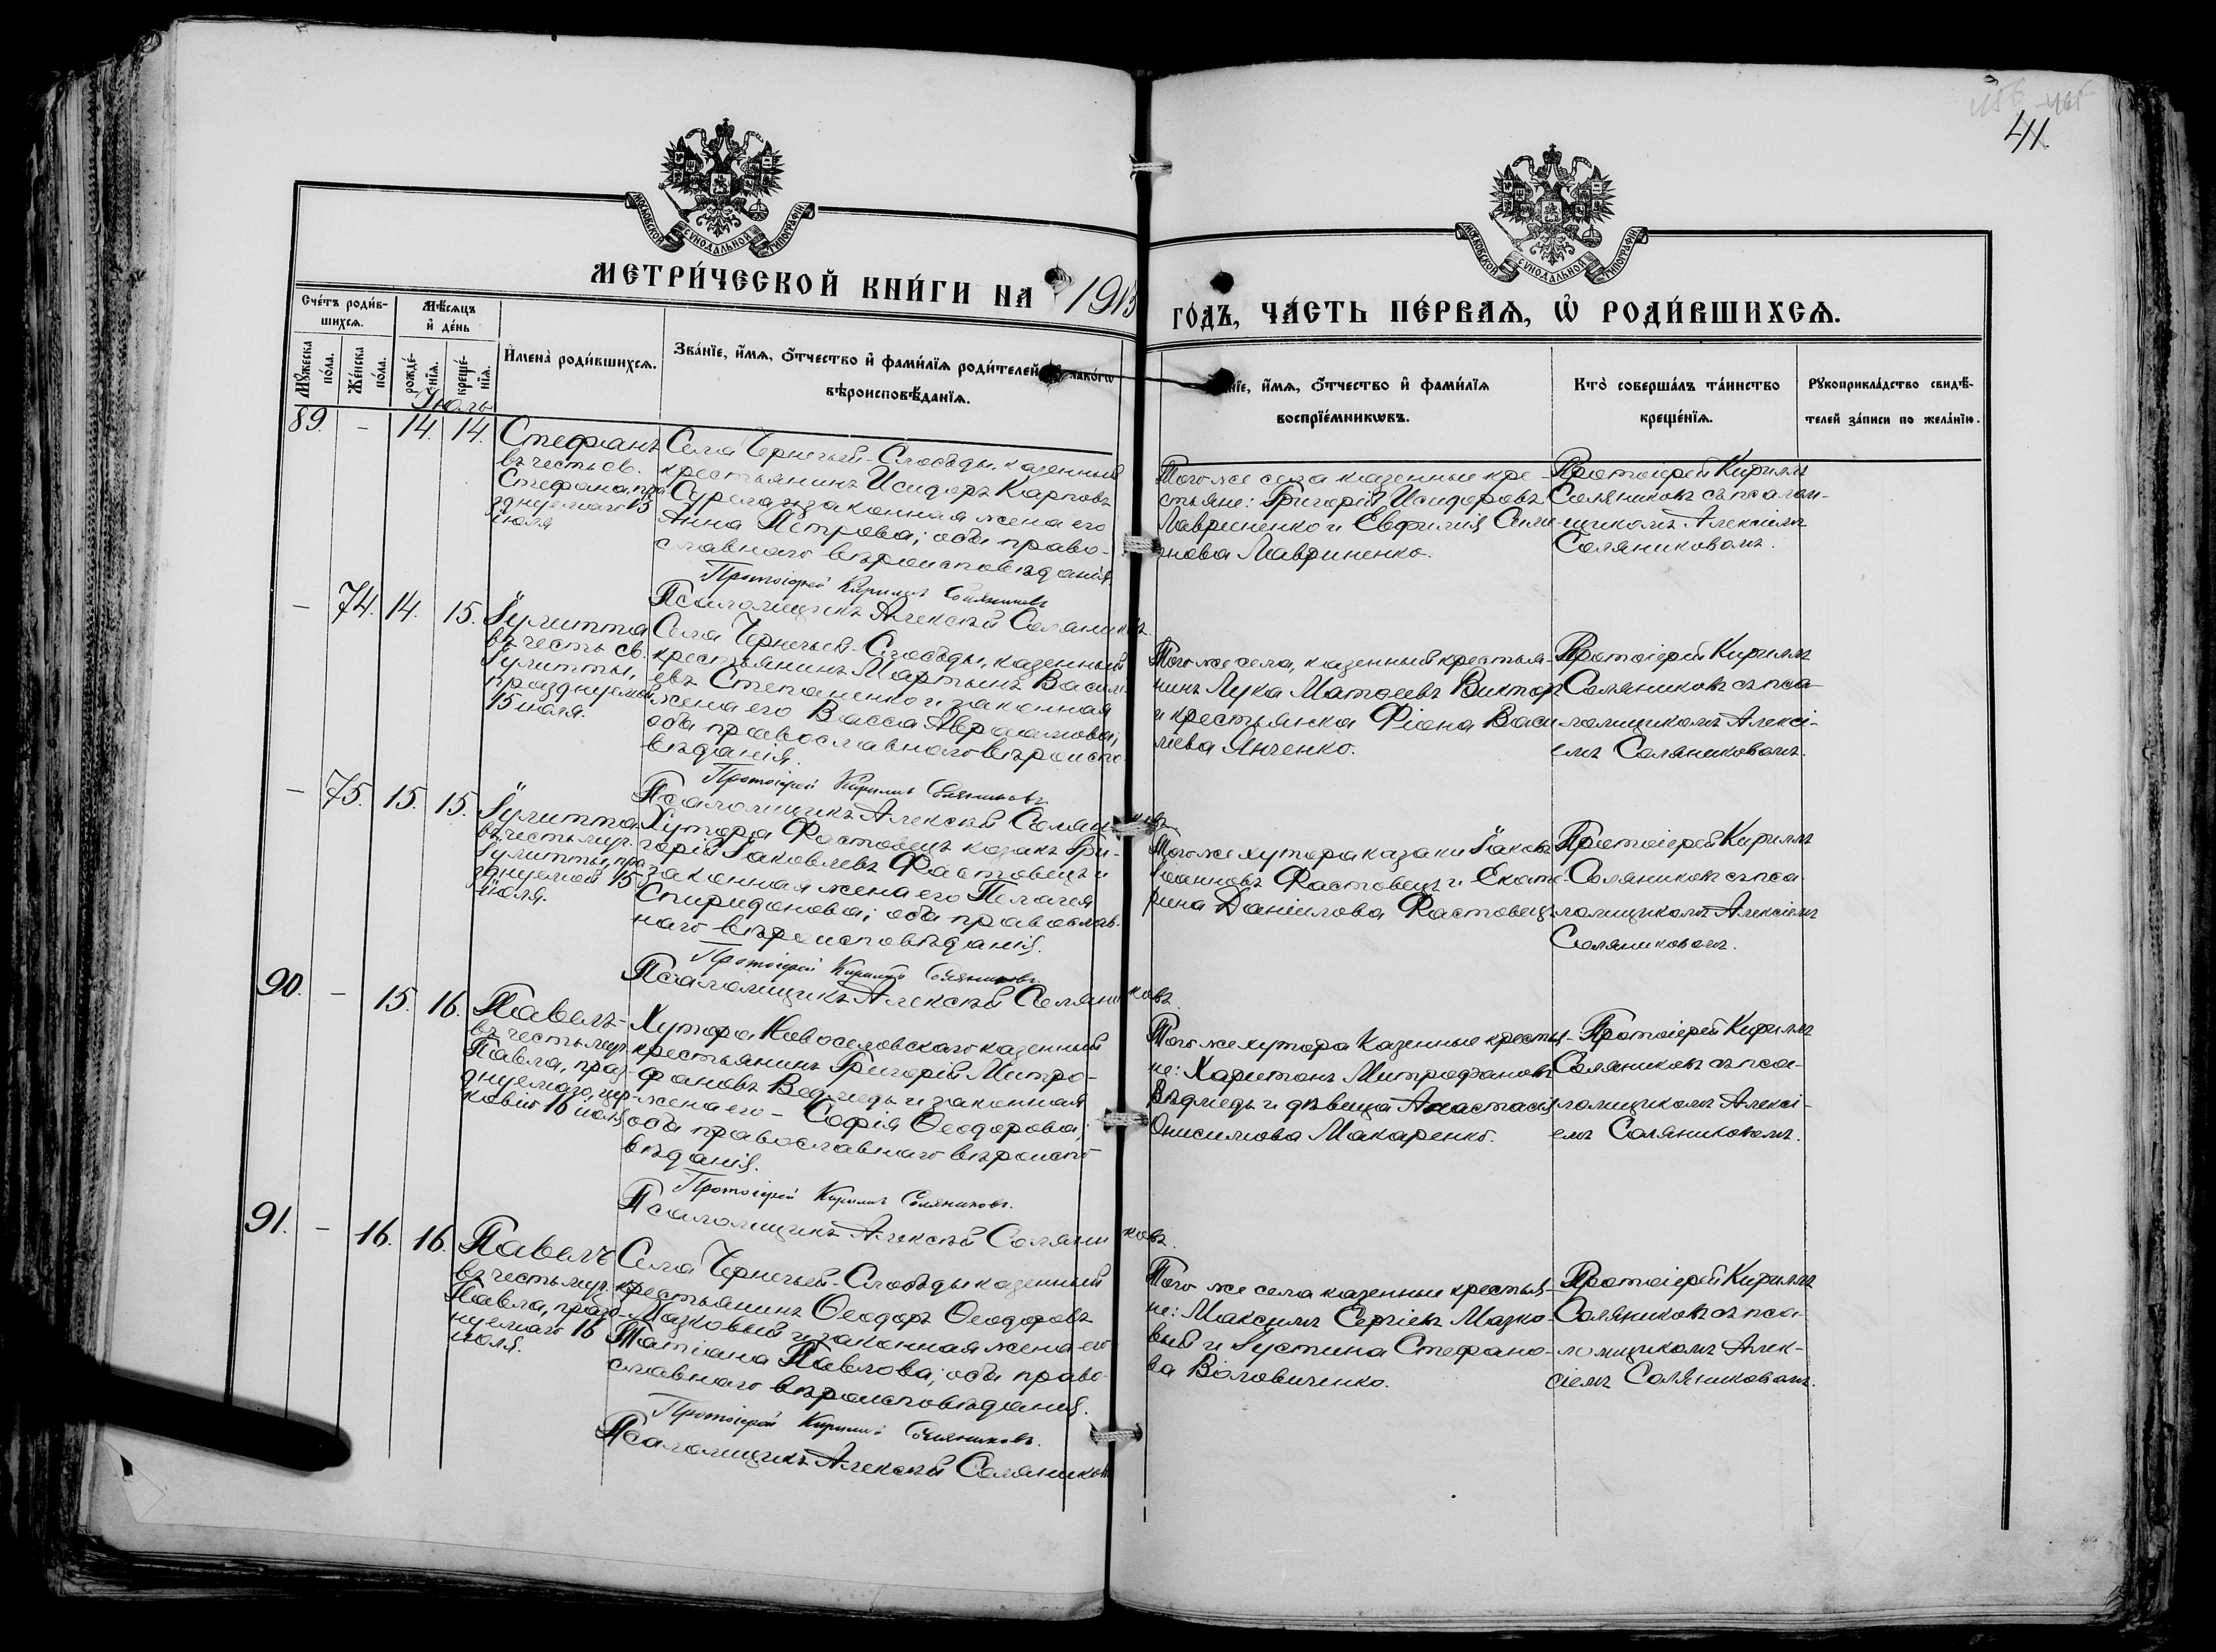 41.
МОСКОВСКОЙ СУНОДАЛЬНОЙ ТИПОГРАФІИ
МОСКОВСКОЙ СУНОДАЛЬНОЙ ТИПОГРАФІИ
МЕТРИ́ЧЕСКОЙ КНИ́ГИ НА 1913
ГОДЪ, ЧА́СТЬ ПЕ́РВАѦ, Ѡ҆ РОДИ́ВШИХСѦ.
Сче́тъ роди́в-
шихсѧ.
Мѣ́сѧцъ
и҆ де́нь
Мꙋ́жеска
по́ла.
Же́нска
по́ла.
рожде́-
нїѧ.
креще́-
нїѧ.
И҆мена̀ роди́вшихсѧ.
Зва́нїе, и҆́мѧ, ѻ҆́тчество и҆ фами́лїѧ роди́телей
вѣроисповѣ́данїѧ.
и҆́мѧ, ѻ҆́тчество и҆ фами́лїѧ
воспрїе́мникѡвъ.
Кто̀ соверша́лъ та́инство
креще́нїѧ.
Рꙋкоприкла́дство свидѣ́-
телей за́писи по жела́нїю.
Іюль
89. - 14. 14.
Стефанъ
въ честь св.
Стефана, пра
зднуемаго 13
іюля
Села Чернечьей-Слободы, казенный
крестьянинъ Исидоръ Карповъ
законная жена его
Анна Петрова; оба право-
славнаго вѣроисповѣданія.
Протоіерей Кириллъ Соляниковъ
Псаломщикъ Алексѣй Соляниковъ.
Того же села казенные кре-
стьяне: Григорій Исидоровъ
Лавриненко и Евфимія Сими-
нова Лавриненко.
Протоіерей Кириллъ
Соляниковъ съ псалом-
щикомъ Алексіемъ
Соляниковымъ.
- 74. 14. 15.
Іулитта
въ честь св.
Іулитты,
празднуемой
15 іюля.
Села Чернечьей-Слободы, казенный
крестьянинъ Мартинъ Васил-
евъ Степаненко и законная
жена его Васса Авраамова;
оба православнаго вѣроиспо-
вѣданія.
Протоіерей Кириллъ Соляниковъ
Псаломщикъ Алексѣй Соляниковъ
Того же села, казенный крестья-
нинъ Лука Матѳеевъ Виктор
и крестьянка Фіона Васи-
лiева Янченко.
Протоіерей Кириллъ
Соляниковъ съ пса-
ломщикомъ Алексі-
емъ Соляниковымъ.
- 75. 15. 15.
Іулитта
въ честь муч.
Іулитты, пра
зднуемой 15
іюля.
Хутора Фастовецъ казакъ Гри-
горій Іаковлевъ Фастовецъ и
законная жена его Пелагея
Спиридонова; оба православ-
наго вѣроисповѣданія.
Протоіерей Кириллъ Соляниковъ
Псаломщикъ Алексѣй Соляниковъ.
Того же хутора казаки Іаковъ
Іоанновъ Фастовецъ и Екате-
рина Даніилова Фастовецъ
Протоіерей Кириллъ
Соляниковъ съ пса-
ломщикомъ Алексіемъ
Соляниковымъ.
90. - 15. 16.
Павелъ-
въ честь муч.
Павла, праз-
днуемаго, цер-
ковію 16 іюля
Хутора Новоселовскаго казенный
крестьянинъ Григорій Митро-
фановъ Ведмедь и законная
жена его - Софія Ѳеодорова;
оба православнаго вѣроиспо-
вѣданія.
Протоіерей Кириллъ Соляниковъ.
Псаломщикъ Алексѣй Соляниковъ.
Того же хутора казенные крестья-
не: Харитонъ Митрофановъ
Вѣдмедь и дѣвица Анастасія
Онисимова Макаренко.
Протоіерей Кириллъ
Соляниковъ съ пса-
ломщикомъ Алексі-
емъ Соляниковымъ.
91. - 16. 16.
Павелъ
въ честь муч.
Павла, празд-
нуемаго 16
іюля.
Села Чернечьей-Слободы казенный
крестьянинъ Ѳеодоръ Ѳеодоровъ
Мазковый и законная жена его
Татіана Павлова; оба право-
славнаго вѣроисповѣданія.
Протоіерей Кириллъ Соляниковъ.
Псаломщикъ Алексѣй Соляниковъ
Того же села казенные крестья-
не: Максимъ Сергіевъ Мазко-
вый и Іустина Стефано-
ва Воловиченко.
Протоіерей Кириллъ
Соляниковъ съ пса-
ломщикомъ Алек-
сіемъ Соляниковымъ.